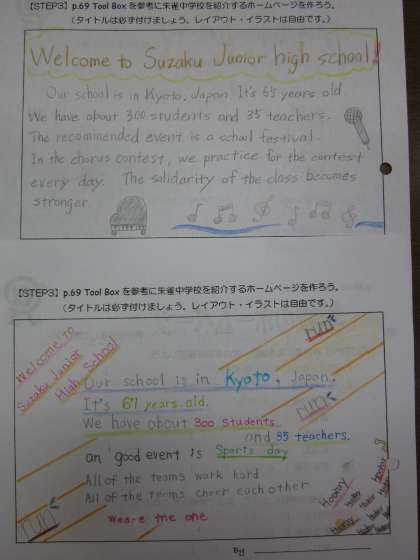 【STEP3】p.69 Tool Box を参考に朱雀中学校を紹介するホームページを作ろう。
（タイトルは必ず付けましょう。レイアウト・イラストは自由です。）
Welcome to Suzaku Junior high school!
Our school is in Kyoto, Japan. It's 67 years old.
We have about 300 students and 35 teachers.
The recommended event is a school festival.
In the chorus contest, we practice for the contest
every day. The solidarity of the class becomes
stronger.
【STEP3】p.69 Tool Box を参考に朱雀中学校を紹介するホームページを作ろう。
（タイトルは必ず付けましょう。レイアウト・イラストは自由です。）
Welcome to
Suzaku Junior
High School
run
Our school is in Kyoto, Japan.
It's 67 years old.
run
We have about 300 students
and 35 teachers.
an good event is Sports day
All of the teams work hard
All of the teams cheer each other
Hooray
run
We are the one
By